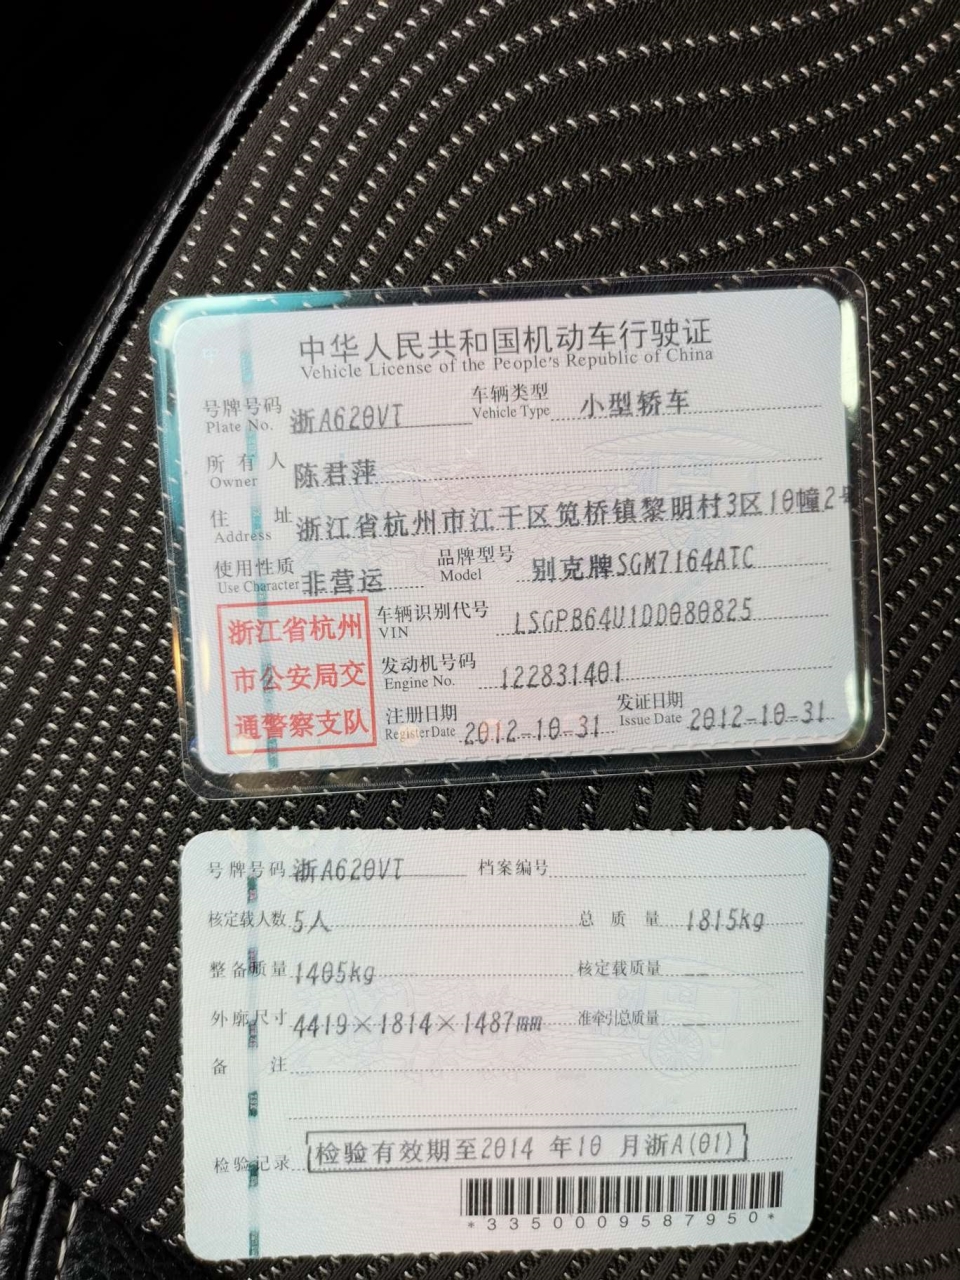 中华人民共和国机动车行驶证
Vehicle License of the People's Republic of China
号牌号码 浙A620VT 车辆类型 小型轿车
Plate No. Vehicle Type
所有人 陈君萍
Owner
住址 浙江省杭州市江干区笕桥镇黎明村3区10幢2号
Address
使用性质 非营运 品牌型号 别克牌SGM7164ATC
Use Character Model
浙江省杭州
市公安局交
通警察支队
车辆识别代号 LSGPB64U1DD080825
VIN
发动机号码 122831401
Engine No.
注册日期 2012-10-31 发证日期 2012-10-31
Register Date Issue Date
号牌号码 浙A620VT 档案编号
核定载人数 5人 总质量 1815kg
整备质量 1405kg 核定载质量 --
外廓尺寸 4419×1814×1487mm 准牵引总质量 --
备注
检验记录 检验有效期至2014年10月浙A(01)
*3350009587950*